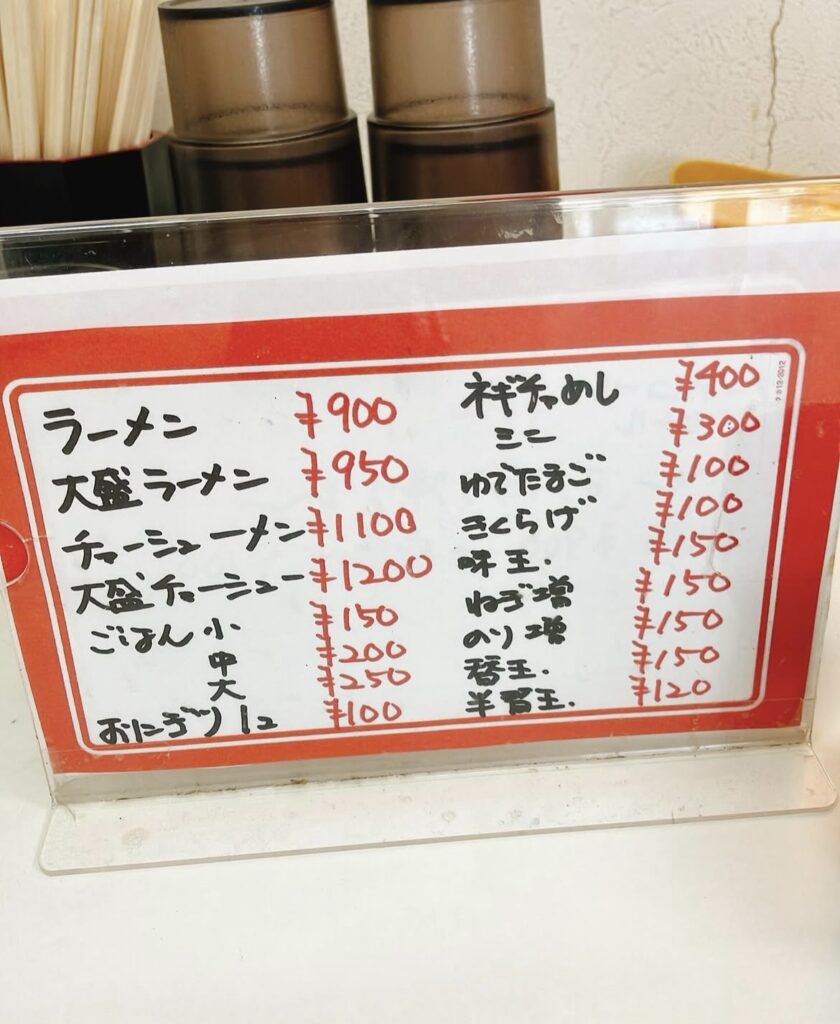 ラーメン ¥900
大盛ラーメン ¥950
チャーシューメン ¥1100
大盛チャーシュー ¥1200
ごはん 小 ¥150
中 ¥200
大 ¥250
おにぎり 1コ ¥100
ネギチャめし ¥400
ミニ ¥300
ゆでたまご ¥100
きくらげ ¥100
味玉. ¥150
ねぎ増 ¥150
のり増 ¥150
替玉. ¥150
半替玉. ¥120